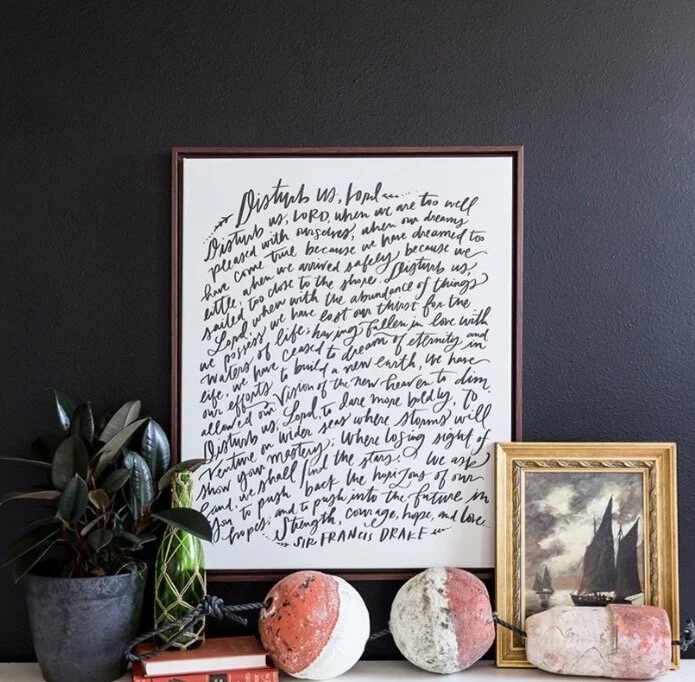 Disturb us, Lord
Disturb us, LORD, when we are too well
pleased with ourselves, when our dreams
have come true because we have dreamed too
little, when we arrived safely because we
sailed too close to the shore. Disturb us,
Lord, when with the abundance of things
we possess we have lost our thirst for the
waters of life; having fallen in love with
life, we have ceased to dream of eternity and in
our efforts to build a new earth, we have
allowed our vision of the new heaven to dim.
Disturb us, Lord, to dare more boldly, to
venture on wider seas where storms will
show your mastery; where losing sight of
land, we shall find the stars. We ask
you to push back the horizons of our
hopes; and to push into the future in
strength, courage, hope, and love.
SIR FRANCIS DRAKE